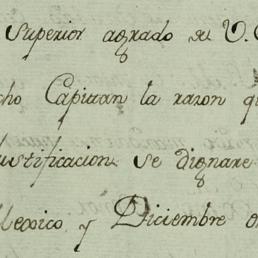 Superior agrado de V. E
cho Capitan la razon q
ustificacion se dignare
Mexico y Diciembre